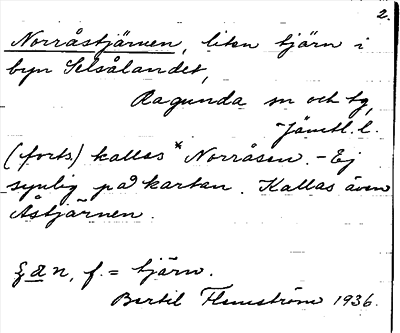 2.
Norråstjärnen, liten tjärn i
byn Selsålandet,
Ragunda sn och tg,
Jämtl. l.
(forts) kallas * Norråsen. - Ej
synlig på kartan. Kallas även
Åstjärnen.
n, f. = tjärn.
Bertil Flemström 1936.